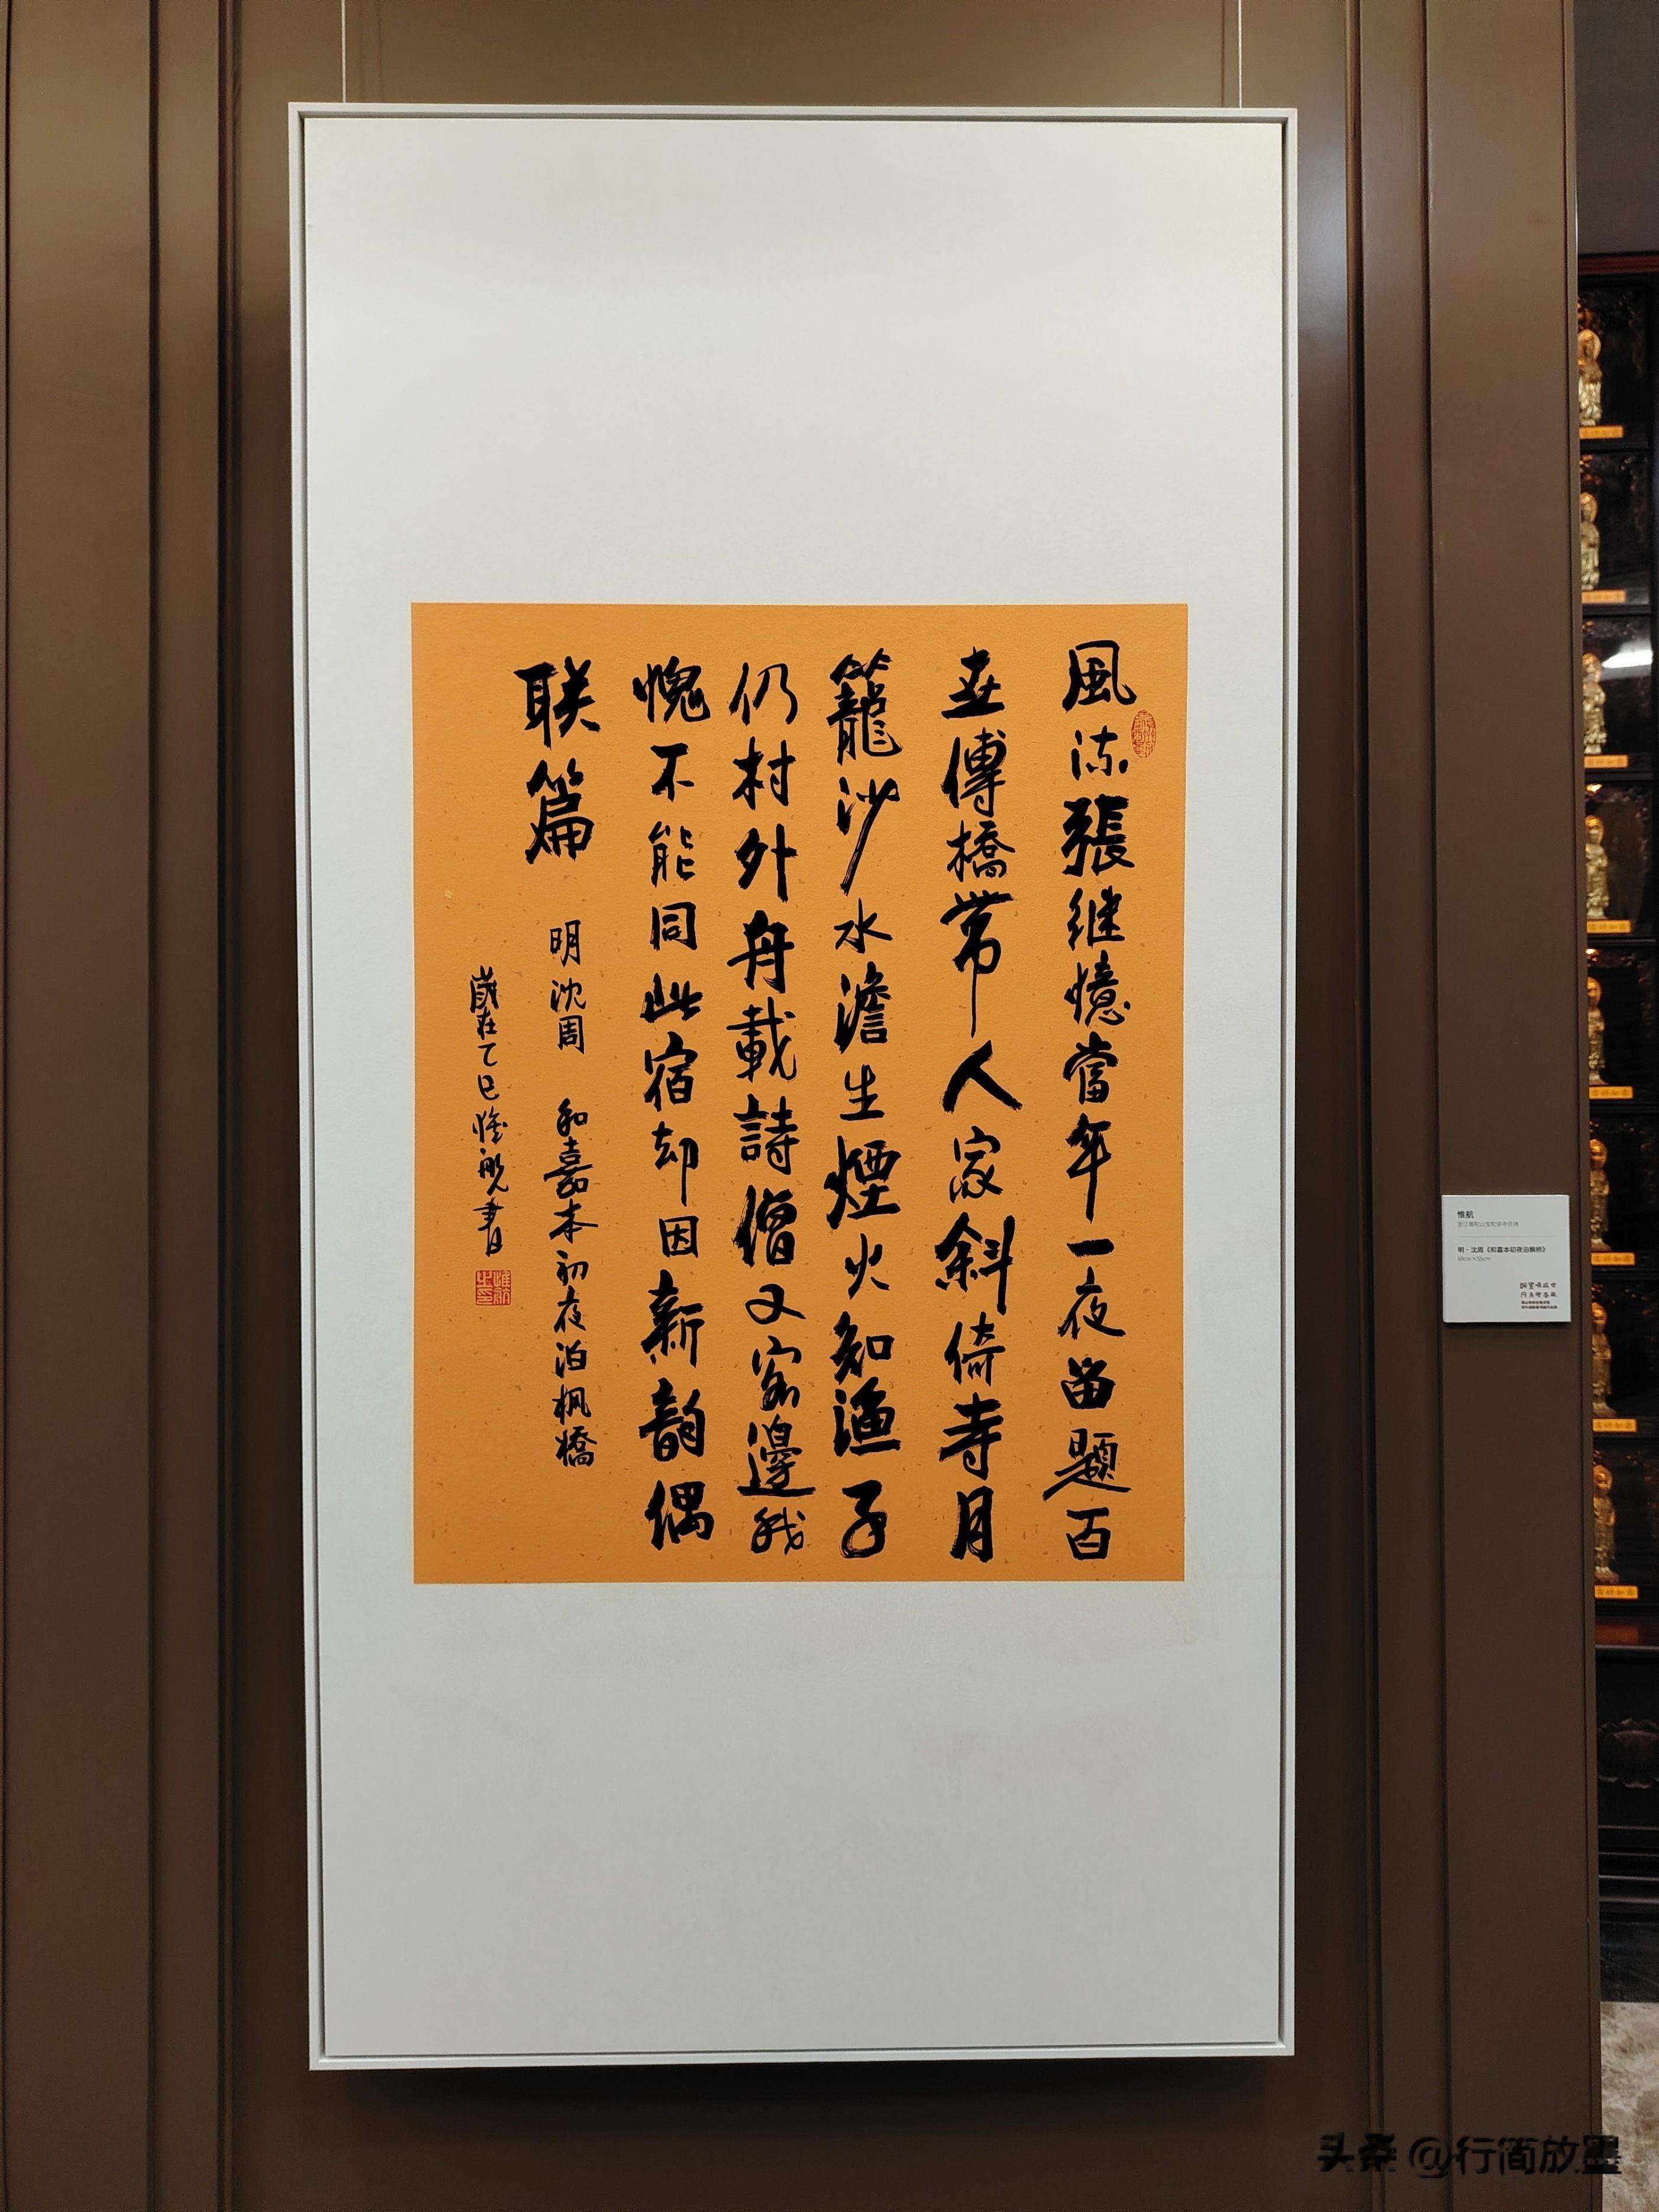 風流張继憶當年一夜留題百
世傳橋帶人家斜倚寺月
籠沙水澹生煙火知漁子
仍村外舟載詩僧又客邊我
愧不能同此宿却因新韵偶
联篇
明沈周 和嘉本初夜泊枫橋
歲在乙巳惟航書
惟航
明·沈周《和嘉本初夜泊枫桥》
头条 @行简放墨